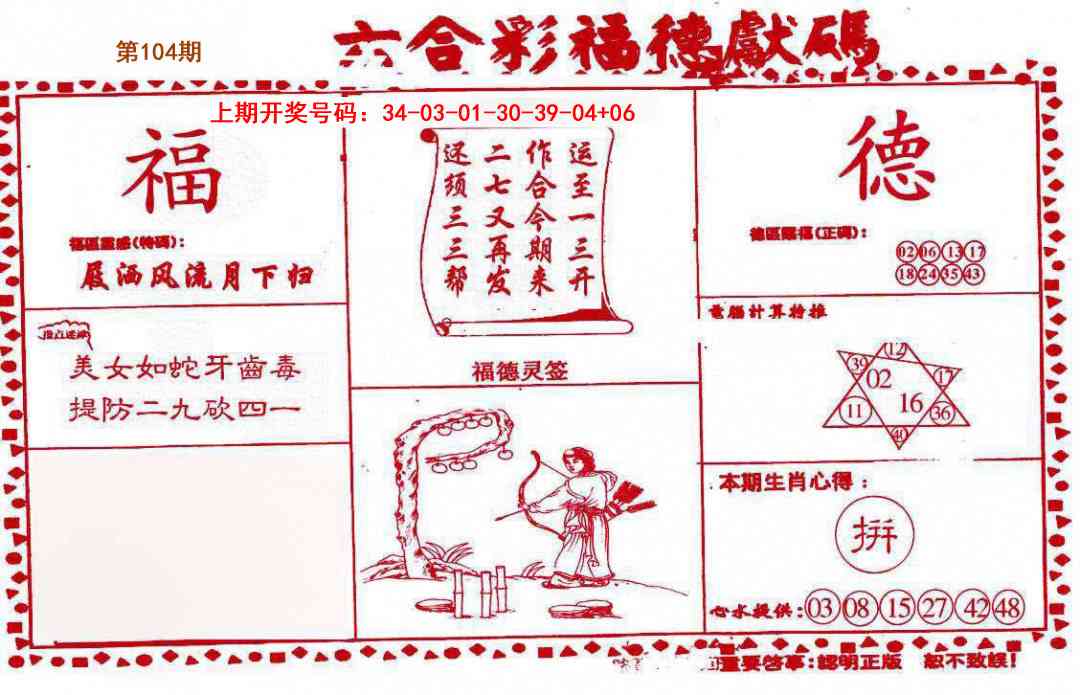 第104期
六合彩福德獻碼
上期开奖号码：34-03-01-30-39-04+06
福
福區靈感(特碼)：
屐洒风流月下归
美女如蛇牙齒毒
提防二九砍四一
运至一三开
作合今期来
二七又再发
还须三三帮
福德灵签
德
德區賜福(正碼)：
02 06 13 17
18 24 35 43
電腦計算特推
12
39 02 17
11 16 36
40
本期生肖心得：
拼
心水提供：03 08 15 27 42 48
重要啓事：認明正版 恕不致誤！